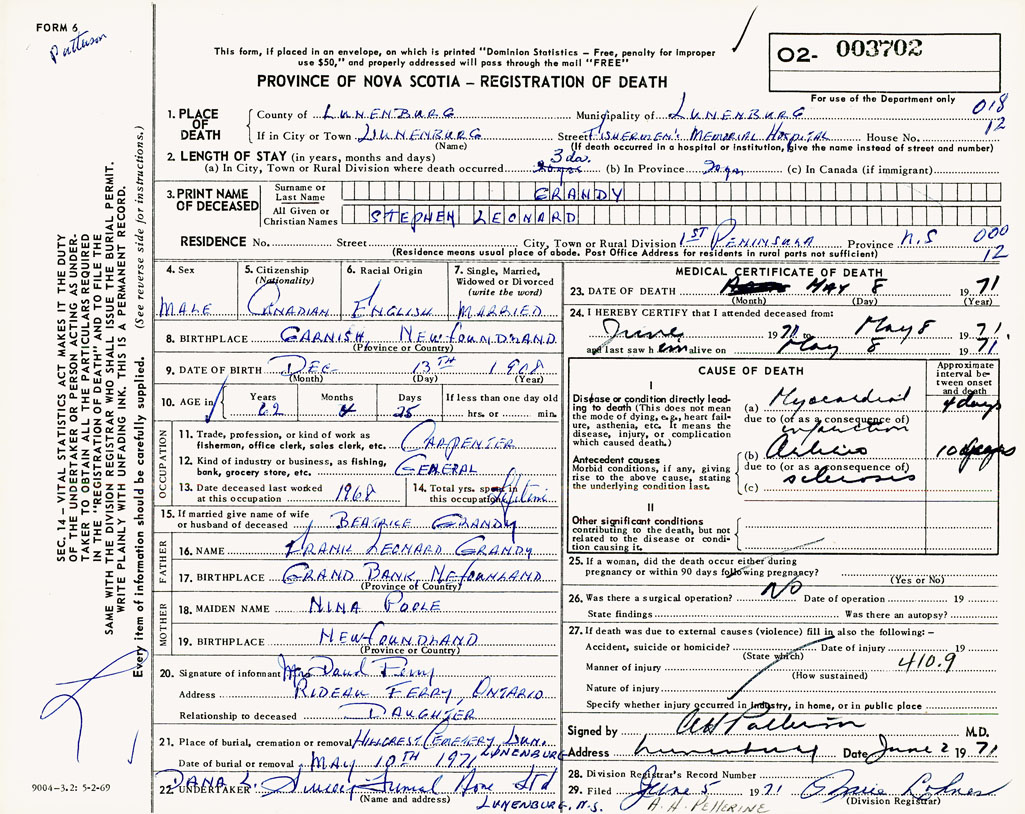 FORM 6
Patterson
This form, if placed in an envelope, on which is printed "Dominion Statistics – Free, penalty for improper
use $50," and properly addressed will pass through the mail "FREE"
PROVINCE OF NOVA SCOTIA – REGISTRATION OF DEATH
02- 003702
For use of the Department only
018
12
1. PLACE OF DEATH
County of LUNENBURG Municipality of LUNENBURG
If in City or Town LUNENBURG Street FISHERMEN'S MEMORIAL HOSPITAL House No.
(Name) (If death occurred in a hospital or institution, give the name instead of street and number)
2. LENGTH OF STAY (in years, months and days)
3 da.
(a) In City, Town or Rural Division where death occurred (b) In Province 20 yrs (c) In Canada (if immigrant)
3. PRINT NAME OF DECEASED
Surname or Last Name GRANDY
All Given or Christian Names STEPHEN LEONARD
RESIDENCE No. Street City, Town or Rural Division 1ST PENINSULA Province N.S 000
(Residence means usual place of abode. Post Office Address for residents in rural parts not sufficient) 12
4. Sex
MALE
5. Citizenship
(Nationality)
CANADIAN
6. Racial Origin
ENGLISH
7. Single, Married,
Widowed or Divorced
(write the word)
MARRIED
8. BIRTHPLACE GARNISH, NEWFOUNDLAND
(Province or Country)
9. DATE OF BIRTH DEC 13TH 1908
(Month) (Day) (Year)
10. AGE in Years Months Days If less than one day old
62 4 25 hrs. or min.
OCCUPATION
11. Trade, profession, or kind of work as
fisherman, office clerk, sales clerk, etc. CARPENTER
12. Kind of industry or business, as fishing,
bank, grocery store, etc. GENERAL
13. Date deceased last worked
at this occupation 1968
14. Total yrs. spent
in this occupation lifetime
15. If married give name of wife
or husband of deceased BEATRICE GRANDY
FATHER
16. NAME FRANK LEONARD GRANDY
17. BIRTHPLACE GRAND BANK, NEFOUNLAND
(Province of Country)
MOTHER
18. MAIDEN NAME NINA POOLE
19. BIRTHPLACE NEWFOUNDLAND
(Province or Country)
20. Signature of informant Mrs David
Address RIDEAU FERRY, ONTARIO
Relationship to deceased DAUGHTER
21. Place of burial, cremation or removal HILLCREST CEMETERY LUN.
LUNENBURG
Date of burial or removal MAY 10TH 1971
22. UNDERTAKER DANA L. Sweeny Funeral Home Ltd
(Name and address) LUNENBURG, N.S.
MEDICAL CERTIFICATE OF DEATH
23. DATE OF DEATH MAY 8 1971
(Month) (Day) (Year)
24. I HEREBY CERTIFY that I attended deceased from:
June 1971 to May 8 1971
and last saw h em alive on May 8 1971
CAUSE OF DEATH
Approximate
interval be-
tween onset
and death
I
Disease or condition directly lead-
ing to death (This does not mean
the mode of dying, e.g., heart fail-
ure, asthenia, etc. It means the
disease, injury, or complication
which caused death.)
(a) Myocardial 4 days
due to (or as a consequence of)
infarction
Antecedent causes
Morbid conditions, if any, giving
rise to the above cause, stating
the underlying condition last.
(b) Arterio 10 years
due to (or as a consequence of)
sclerosis
(c)
II
Other significant conditions
contributing to the death, but not
related to the disease or condi-
tion causing it.
25. If a woman, did the death occur either during
pregnancy or within 90 days following pregnancy?
(Yes or No)
26. Was there a surgical operation? NO Date of operation 19
State findings Was there an autopsy?
27. If death was due to external causes (violence) fill in also the following: –
Accident, suicide or homicide? Date of injury 19
(State which)
Manner of injury 410.9
(How sustained)
Nature of injury
Specify whether injury occurred in industry, in home, or in public place
Signed by Patterson M.D.
Address Lunenburg Date June 2 1971
28. Division Registrar's Record Number
29. Filed June 5 1971 Lohnes
(Division Registrar)
A. H. PETTERINE
SEC. 14 – VITAL STATISTICS ACT MAKES IT THE DUTY
OF THE UNDERTAKER OR PERSON ACTING AS UNDER-
TAKER TO OBTAIN ALL THE PARTICULARS REQUIRED
IN THE "REGISTRATION OF DEATH" AND TO FILE THE
SAME WITH THE DIVISION REGISTRAR WHO SHALL ISSUE THE BURIAL PERMIT.
WRITE PLAINLY WITH UNFADING INK. THIS IS A PERMANENT RECORD.
Every item of information should be carefully supplied. (See reverse side for instructions.)
9004-3.2: 5-2-69